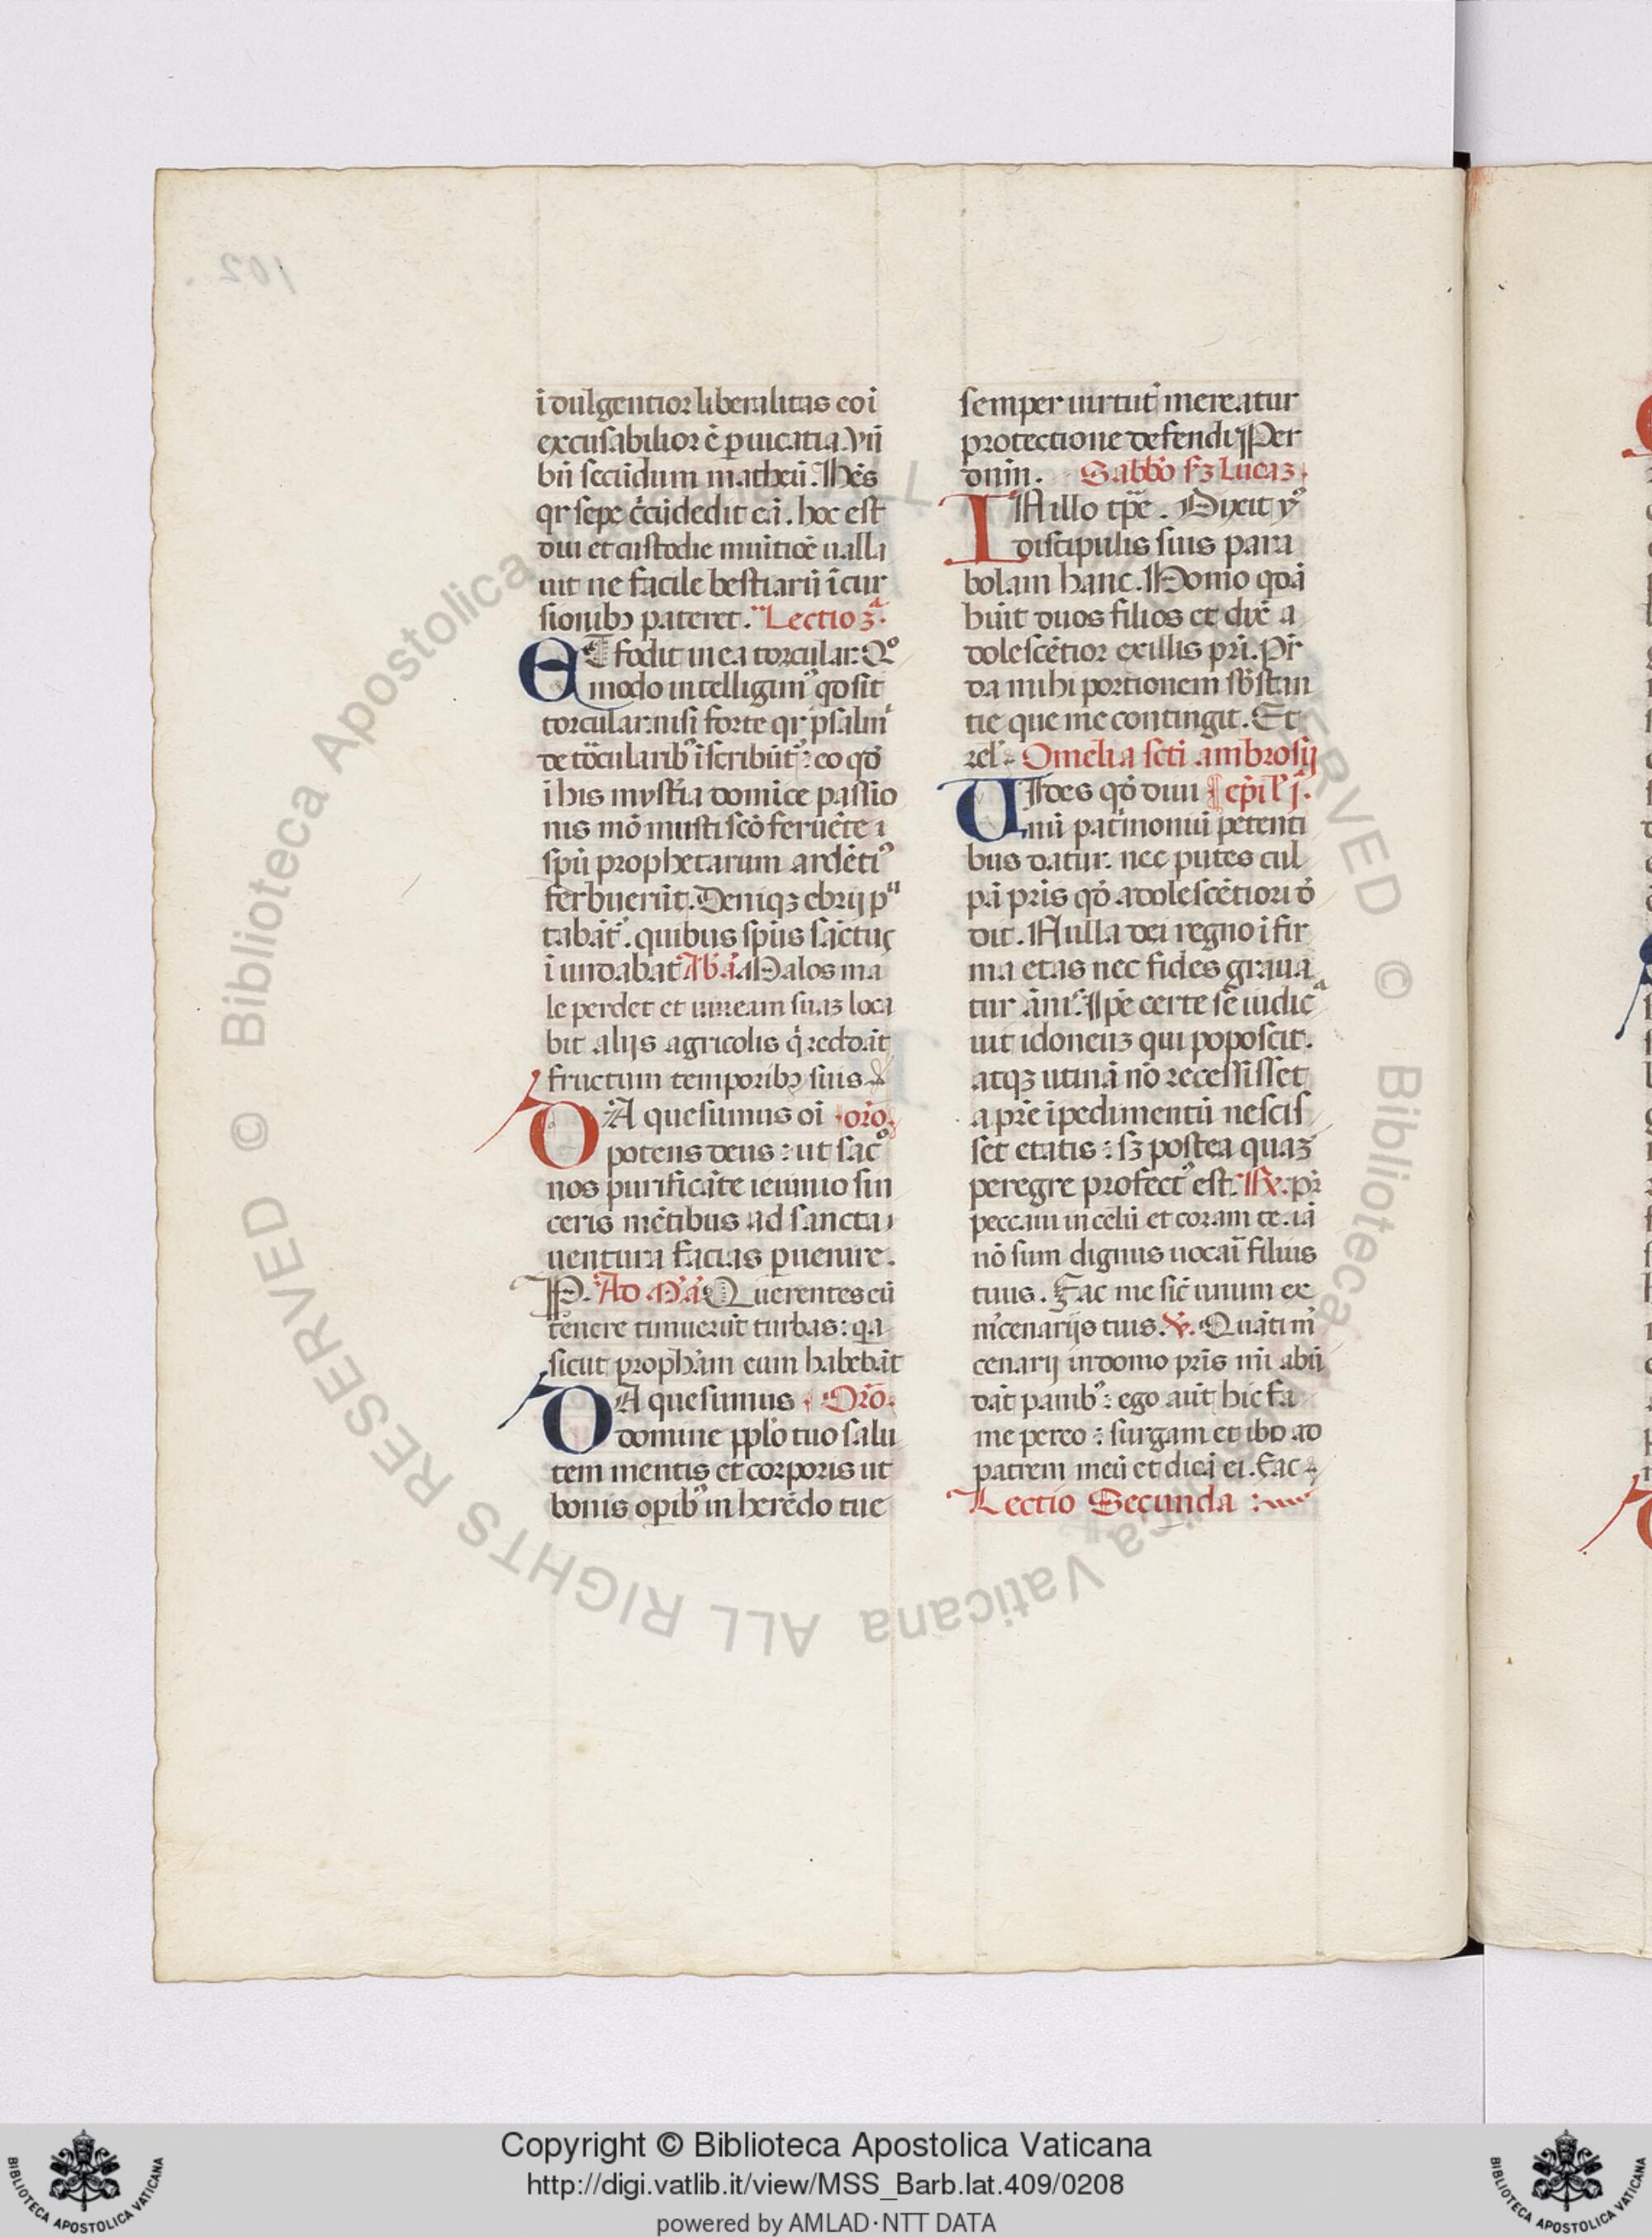 i dulgentior liberalitas eo i
excusabilior ē ꝑuicatia. Vñ
bn̄ secūdum matheū. Hēs
qr sepe c̄cūdedit eā. hoc est
diui et custodie munitiōe ualla
uit ne facile bestiarū īcur
sionibꝫ pateret. Lectio 3ª.
ET fodit in ea torcular. Qº
modo intelligimꝰ qd sit
torcular. nisi forte qr psalmi
de tōcularibꝰ īscribūtᷣ: eo qđ
i his mysťia domīce passio
nis mō musti scō feruēte i
spū prophetarum ardētiꝰ
ferbuerūt. Deniqꝫ ebrij pu
tabātᷣ. quibus spūs sāctus
i undabat Ad b̄. ā. Malos ma
le perdet et uineam suaꝫ loca
bit alijs agricolis q̇ reddāt
fructum temporibꝫ suis
DA quesumus oī orō.
potens deus: ut sacº
nos purificāte ieiunio sin
ceris mētibus ad sancta
uentura facias ꝑuenire.
P. Ad M. ā. Querentes eū
tenere timuerūt turbas: qa
sicut propħam eum habebāt
DA quesumus Orō.
domine pplō tuo salu
tem mentis et corporis ut
bonis opibꝰ in herēdo tue
semper uirtutꝭ mereatur
protectione defendi Per
dnm̄. Sabbō sꝫ Lucaꝫ.
IN illo tpē. Dixit yꝰ
discipulis suis para
bolam hanc. Homo qdā
būit duos filios et dixꝭ a
dolescētior ex illis pri. Pr̄
da mihi portionem sb̄stan
tie que me contingit. Et
rel̄. Omelia sc̄ti ambrosij
UIdes qđ diui epī lc̄ j.
inū patrimoniū petenti
bus datur. nec putes cul
pā pris qđ adolescētiori đ
dit. Nulla dei regno ifir
ma etas nec fides graua
tur ānis. Ipē certe sē iudicª
uit idoneuꝫ qui poposcit.
atqꝫ utinā nō recessisset
a prē īpedimentū nescis
set etatis: sꝫ postea quaꝫ
peregre profectꝰ est. ℟. pr̄
peccaui in celū et coram te. iā
nō sum dignus uocari filius
tuus. Fac me sic̄ unum ex
mc̄enarijs tuis. ℣. Quāti m̄
cenarij in domo pris mī abū
dāt panibꝰ: ego aūt hic fa
me pereo: surgam et ibo ad
patrem meū et dicā ei. fac
Lectio Secunda
102.
© Biblioteca Apostolica Vaticana ALL RIGHTS RESERVED
© Biblioteca Apostolica Vaticana ALL RIGHTS RESERVED
Copyright © Biblioteca Apostolica Vaticana
http://digi.vatlib.it/view/MSS_Barb.lat.409/0208
powered by AMLAD·NTT DATA
BIBLIOTECA APOSTOLICA VATICANA
BIBLIOTECA APOSTOLICA VATICANA